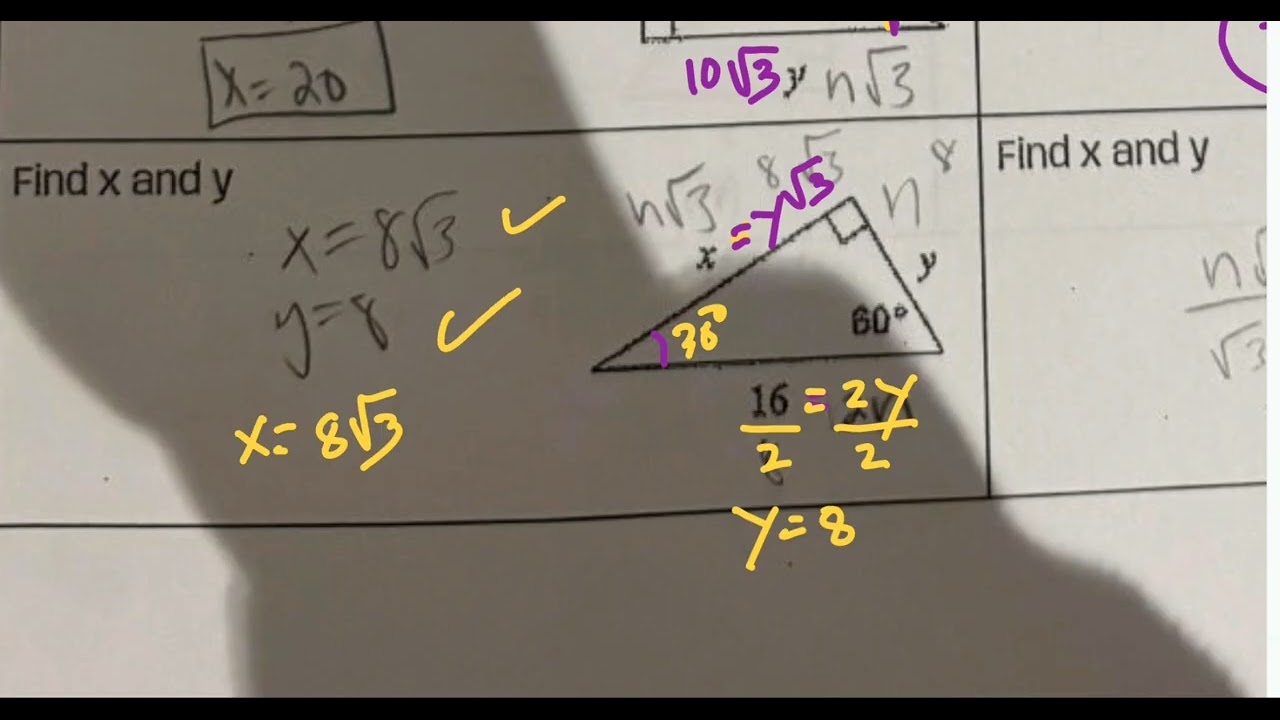 X = 20
10√3 y n√3
Find x and y
x = 8√3
y = 8
x = 8√3
n√3 8√3 n 8
x = y√3
y
30°
60°
16 = 2y
2 2
8
y = 8
Find x and y
n√
√3